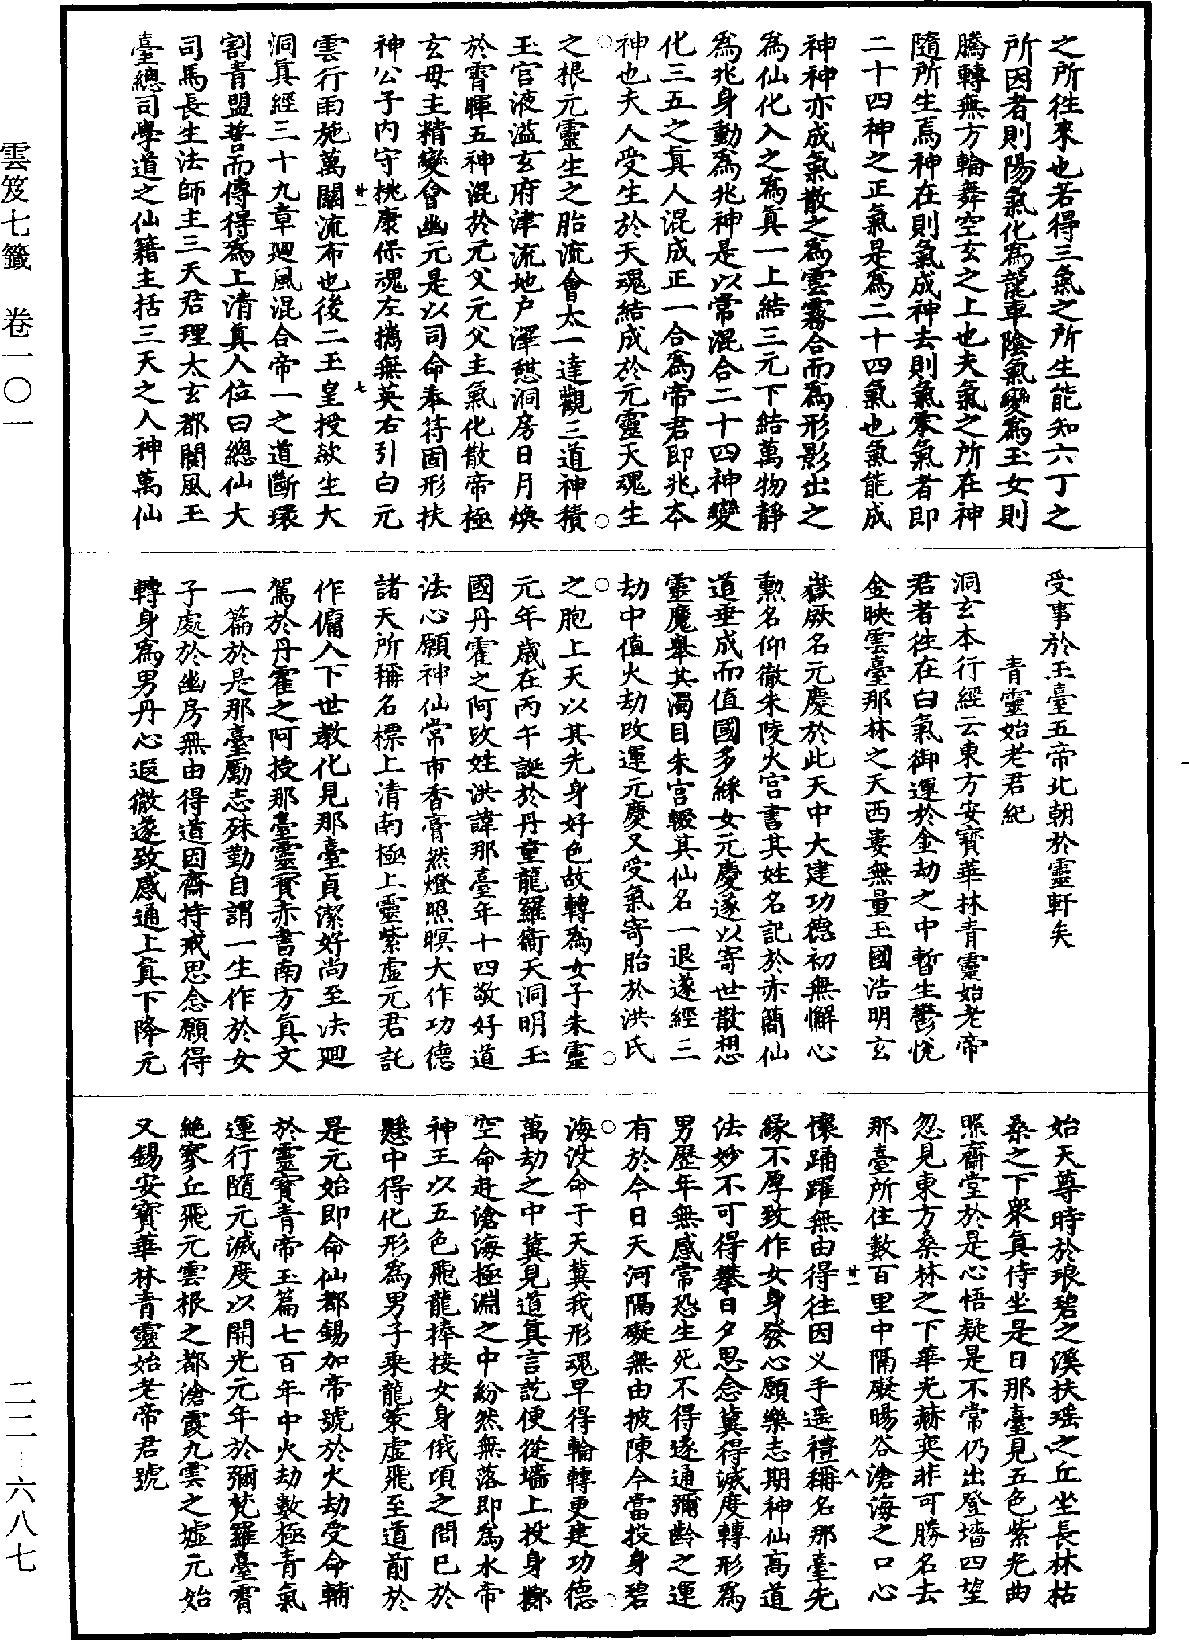 之所往來也若得三氣之所生能知六丁之
所因者則陽氣化爲龍車陰氣變爲玉女則
騰轉無方輪舞空玄之上也夫氣之所在神
隨所生焉神在則氣成神去則氣零氣者即
二十四神之正氣是爲二十四氣也氣能成
神神亦成氣散之爲雲霧合而爲形影出之
爲仙化入之爲真一上結三元下結萬物靜
爲兆身動爲兆神是以常混合二十四神變
化三五之真人混成正一合爲帝君即兆本
神也夫人受生於天魂結成於元靈天魂生
之根元靈生之胎流會太一達觀三道神積
玉宮液溢玄府津流地户澤憇洞房日月煥
於霄暉五神混於元父元父主氣化散帝極
玄母主精變會幽元是以司命奉符固形扶
神公子内守桃康保魂左攜無英右引白元
雲行雨施萬關流布也後二玉皇授欻生大
洞真經三十九章迴風混合帝一之道斷環
割青盟誓而傳得爲上清真人位曰總仙大
司馬長生法師主三天君理太玄都閬風玉
臺總司學道之仙籍主括三天之人神萬仙
受事於玉臺五帝北朝於靈軒矣
青靈始老君紀
洞玄本行經云東方安寶華林青靈始老帝
君者往在白氣御運於金劫之中暫生鬱悅
金映雲臺那林之天西婁無量玉國浩明玄
嶽厥名元慶於此天中大建功德初無懈心
勳名仰徹朱陵火宮書其姓名記於赤簡仙
道垂成而值國多綵女元慶遂以寄世散想
靈魔舉其濁目朱宮輟其仙名一退遂經三
劫中值火劫改運元慶又受氣寄胎於洪氏
之胞上天以其先身好色故轉爲女子朱靈
元年歲在丙午誕於丹童龍羅衞天洞明玉
國丹霍之阿改姓洪諱那臺年十四敬好道
法心願神仙常市香膏然燈照暝大作功德
諸天所稱名標上清南極上靈紫虛元君託
作傭人下世教化見那臺貞潔好尚至法迴
駕於丹霍之阿授那臺靈寶赤書南方真文
一篇於是那臺勵志殊勤自謂一生作於女
子處於幽房無由得道因齋持戒思念願得
轉身爲男丹心遐徹遂致感通上真下降元
始天尊時於琅碧之溪扶瑶之丘坐長林枯
桑之下衆真侍坐是日那臺見五色紫光曲
照齋堂於是心悟疑是不常仍出登墻四望
忽見東方桑林之下華光赫奕非可勝名去
那臺所住數百里中隔礙暘谷滄海之口心
懷踊躍無由得往因叉手遥禮稱名那臺先
緣不厚致作女身發心願樂志期神仙高道
法妙不可得攀日夕思念冀得滅度轉形爲
男歷年無感常恐生死不得遂通彌齡之運
有於今日天河隔礙無由披陳今當投身碧
海没命于天冀我形魂早得輪轉更建功德
萬劫之中冀見道真言訖便從墻上投身擲
空命赴滄海極淵之中紛然無落即爲水帝
神王以五色飛龍捧接女身俄頃之間已於
懸中得化形爲男子乘龍策虛飛至道前於
是元始即命仙都錫加帝號於火劫受命輔
於靈寶青帝玉篇七百年中火劫數極青氣
運行隨元滅度以開光元年於彌梵羅臺霄
絶寥丘飛元雲根之都滄霞九雲之墟元始
又錫安寶華林青靈始老帝君號
雲笈七籤　卷一〇一
二二—六八七
廿一
七
廿一
八